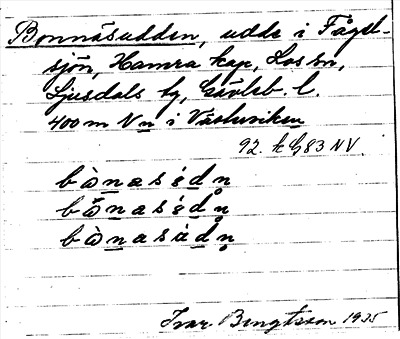 Bonnäsudden, udde i Fågel-
sjön, Hamra kap, Los sn,
Ljusdals tg, Gävleb. l.
400 m N n i Västerviken
92. k G83 NV.
bònasédn
bònasédn
bònasàdn
Ivar Bengtsson 1935